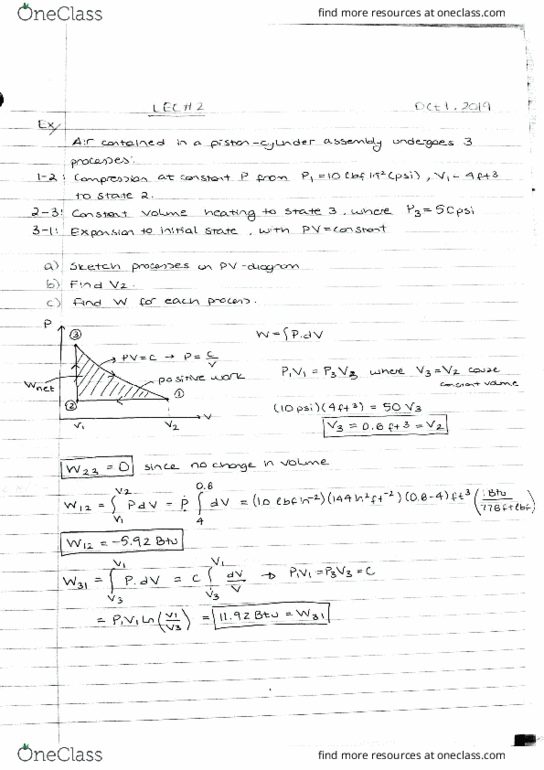 OneClass
find more resources at oneclass.com
LEC# 2
Oct 1, 2019
Ex/
Air contained in a piston-cylinder assembly undergoes 3
processes:
1-2: Compression at constant P from P₁=10 lbf in² (psi), V₁-4ft3
to state 2.
2-3: Constant volume heating to state 3, where P₃=50psi
3-1: Expansion to initial state, with PV=constant
a) Sketch processes on PV-diagram
b) Find V2.
c) Find W for each process.
P
③
PV=C → P=C/V
positive work
Wnet
①
②
V
V₁
V₂
W=∫P.dV
P₁V₁ = P₃V₃, where V₃=V₂ cause
constant volume
(10psi)(4ft³) = 50 V₃
V₃ = 0.8 ft³ = V₂
W₂₃ = 0 since no change in volume
W₁₂ = ∫V₁V₂ PdV = P ∫40.8 dV = (10 lbf in⁻²)(144in²ft⁻²)(0.8-4)ft³ (1Btu/778ftlbf)
W₁₂ = -5.92 Btu
W₃₁ = ∫V₃V₁ P.dV = C ∫V₃V₁ dV/V → P₁V₁=P₃V₃=C
= P₁V₁ ln(V₁/V₃) = 11.92 Btu = W₃₁
OneClass
find more resources at oneclass.com